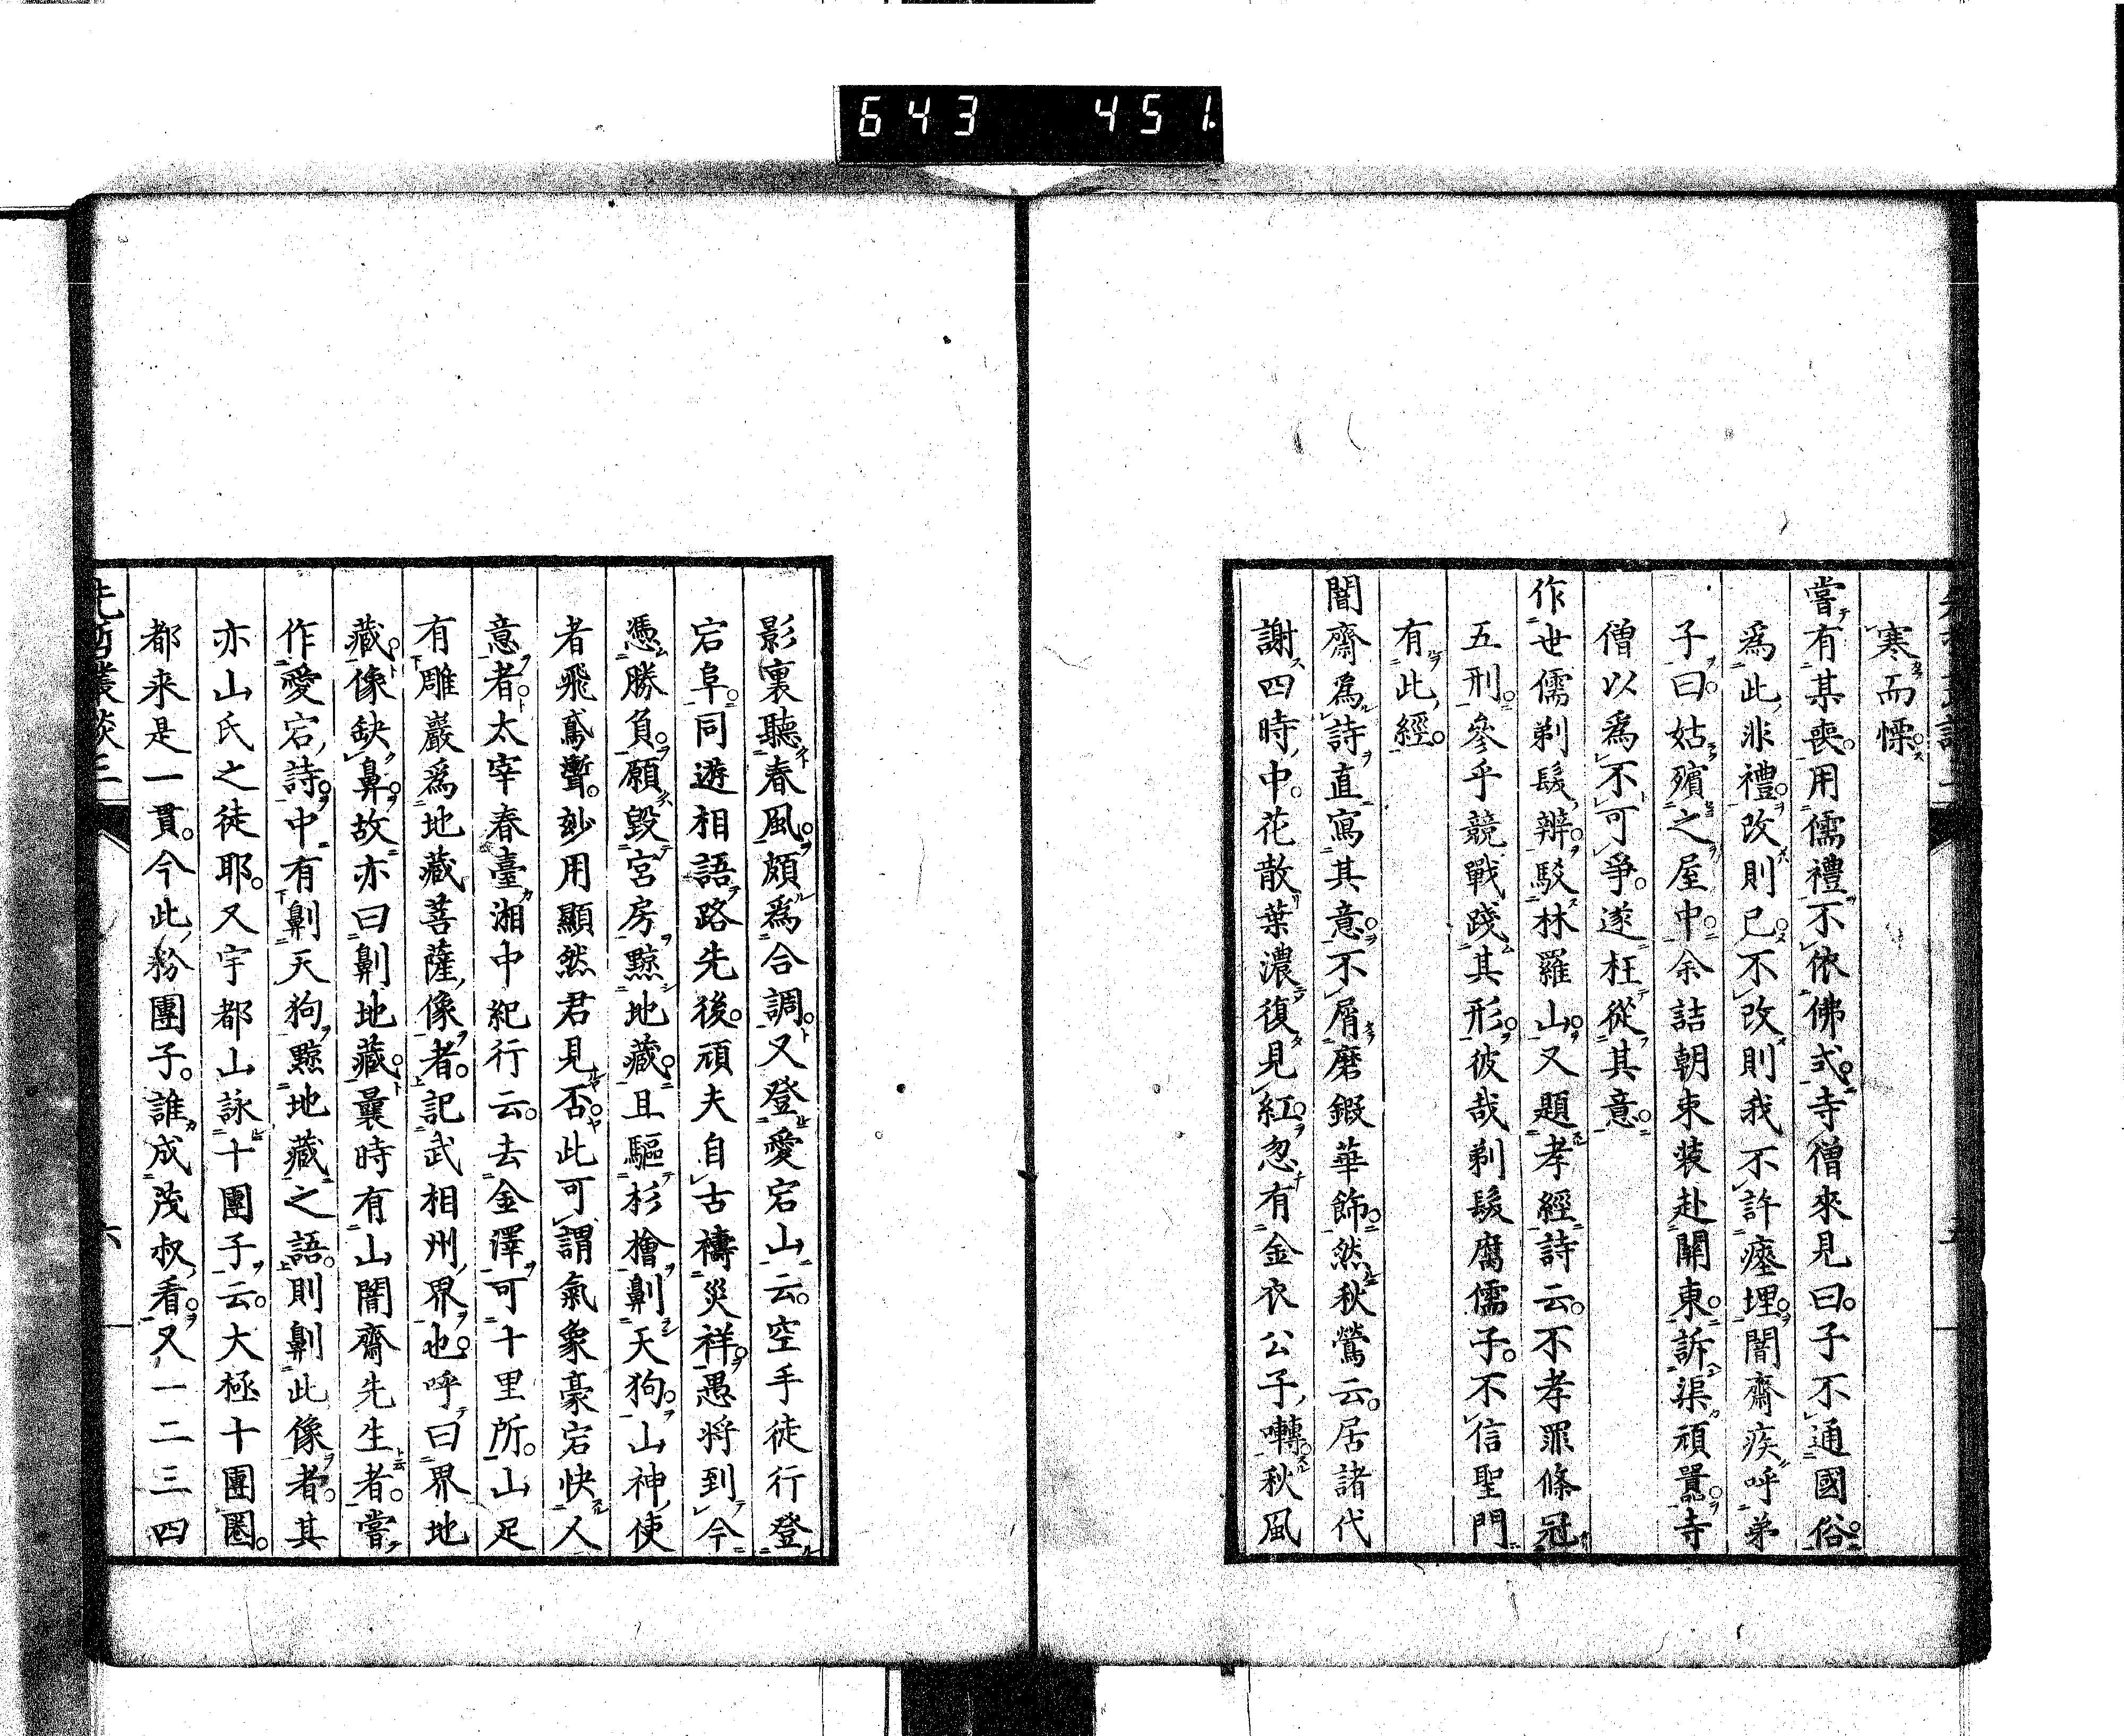 643 451
寒而慄。
嘗有某喪。用儒禮不依佛式。寺僧來見曰。子不通國俗。
爲此非禮。改則已。不改則我不許瘞埋。闇齋疾呼弟
子曰。姑殯之屋中。余詰朝束裝赴關東。訴渠頑嚚。寺
僧以爲不可爭。遂枉從其意。
作世儒剃髮辨。駁林羅山。又題孝經詩云。不孝罪條冠
五刑。參乎競戰踐其形。彼哉剃髮腐儒子。不信聖門
有此經。
闇齋爲詩直寫其意。不屑磨鍜華飾。然秋鶯云。居諸代
謝四時中。花散葉濃復見紅。忽有金衣公子囀。秋風
影裏聽春風。頗爲合調。又登愛宕山云。空手徒行登
宕阜。同遊相語路先後。頑夫自古禱災祥。愚將到今
憑勝負。願毀宮房黥地藏。且驅杉檜劓天狗。山神使
者飛鳶聾。玅用顯然君見否。此可謂氣象豪宕快人
意者。太宰春臺湘中紀行云。去金澤可十里所。山足
有雕巖爲地藏菩薩像者。記武相州界也。呼曰界地
藏。像缺鼻。故亦曰劓地藏。曩時有山闇齋先生者。嘗
作愛宕詩。中有劓天狗黥地藏之語。則劓此像者。其
亦山氏之徒耶。又宇都山詠十團子云。大極十團圈。
都来是一貫。今此粉團子。誰成茂叔看。又一二三四
先哲叢談三
六